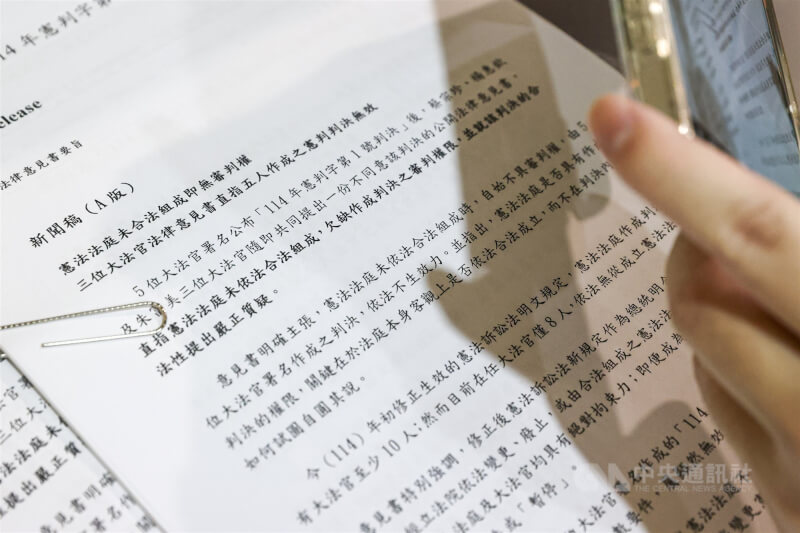 14 年憲判字第
elease
法律意見書要旨
新聞稿（A 版）
憲法法庭未合法組成即無審判權
三位大法官法律意見書直指五人作成之憲判判決無效
5 位大法官署名公布「114 年憲判字第 1 號判決」後，蔡宗珍、楊惠欽
及 美三位大法官隨即共同提出一份不同意該判決的公開法律意見書，
直指憲法法庭未依法合法組成，欠缺作成判決之審判權限，並就該判決的合
法性提出嚴正質疑。
意見書明確主張，憲法法庭未依法合法組成時，自始不具審判權，由 5
位大法官署名作成之判決，依法不生效力，並指出，憲法法庭是否具有作
判決的權限，關鍵在於法庭本身客觀上是否依法合法成立，而不在判決內
如何試圖自圓其說。
今（114）年初修正生效的憲法訴訟法明文規定，憲法法庭作成判
有大法官至少 10 人；然而目前在任大法官僅 8 人，依法無從成立憲法
意見書特別強調，修正後憲法訴訟法新規定作為總統明
立法院依憲法變更、廢止，或由合法組成之憲法法
法庭及大法官均具有絕對拘束力；即便成為
或「暫停」
大法官 作成的「114
當然無效
憲法法
變更
三位大
法法庭未
提出嚴正質
意見書明確
法官署名作
中央通訊社
THE CENTRAL NEWS AGENCY